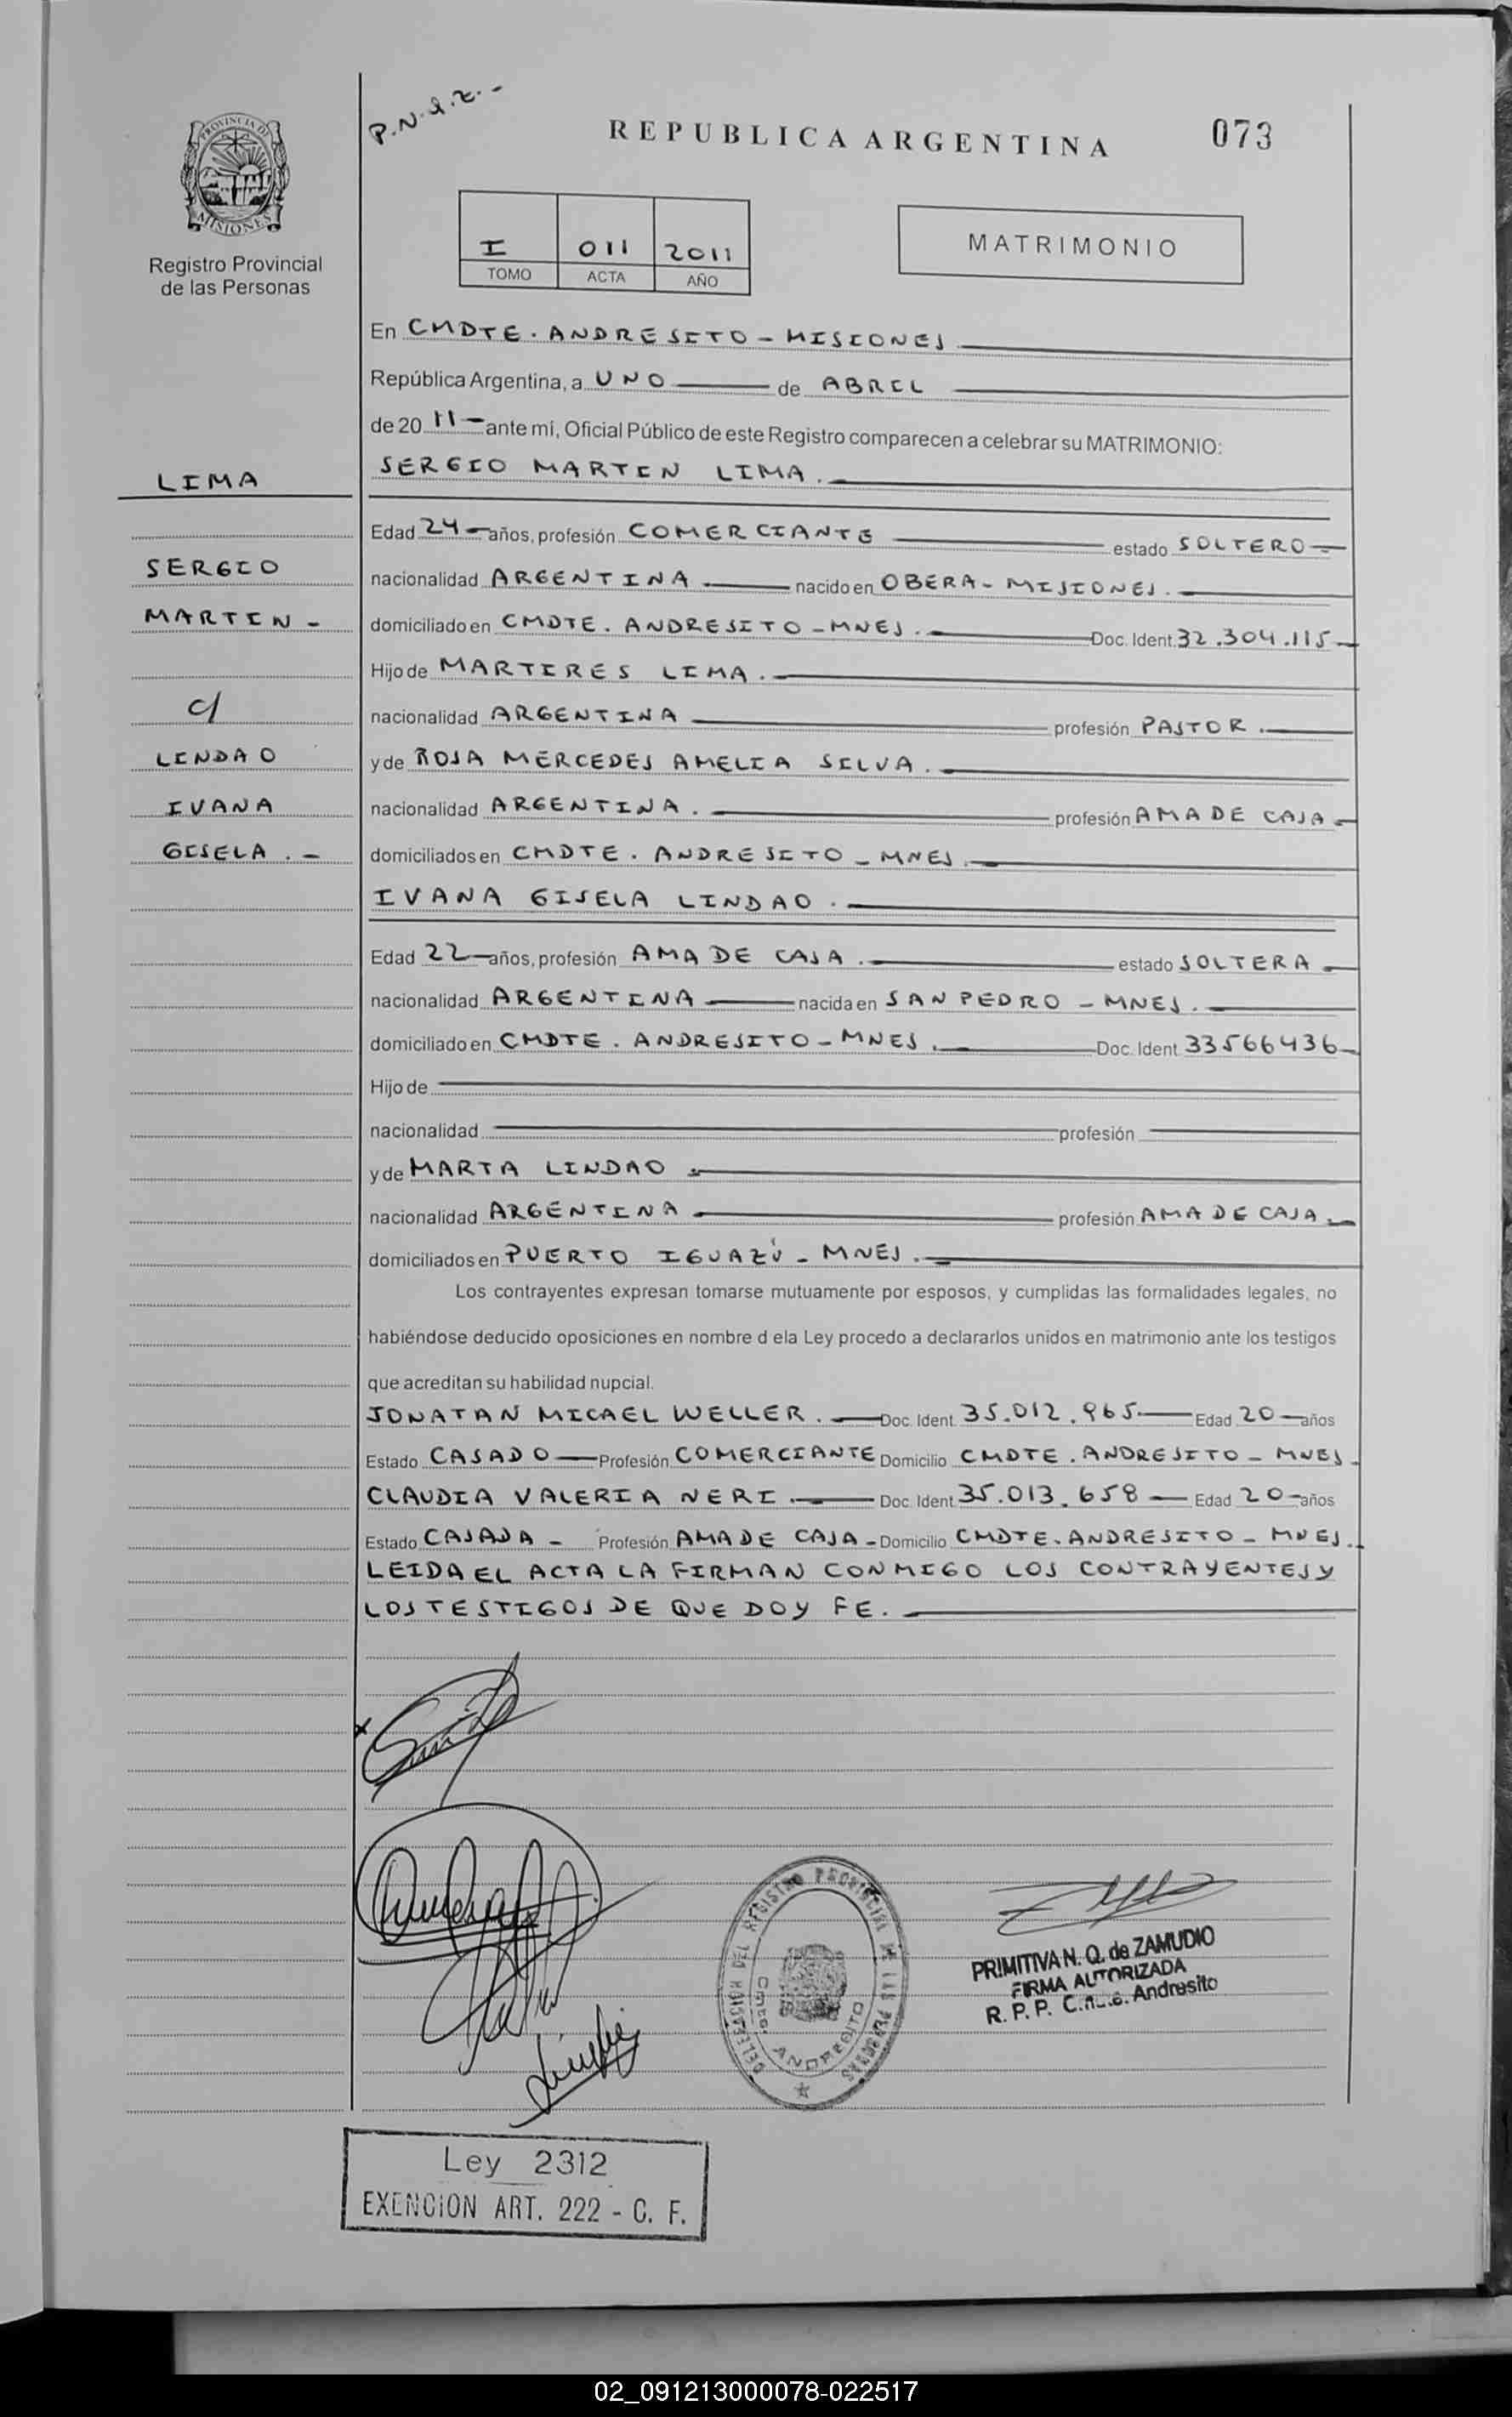 PROVINCIA DE
MISIONES
Registro Provincial
de las Personas
P.N.Q.Z.-
REPUBLICA ARGENTINA
073
I 011 2011
TOMO ACTA AÑO
MATRIMONIO
En CMDTE. ANDRESITO - MISIONES
República Argentina, a UNO de ABRIL
de 20 11 - ante mí, Oficial Público de este Registro comparecen a celebrar su MATRIMONIO:
LIMA
SERGIO MARTIN LIMA.
Edad 24 - años, profesión COMERCIANTE estado SOLTERO
SERGIO
nacionalidad ARGENTINA nacido en OBERA - MISIONES.
MARTIN -
domiciliado en CMDTE. ANDRESITO - MNES. Doc. Ident. 32.304.115
Hijo de MARTIRES LIMA.
c/
nacionalidad ARGENTINA profesión PASTOR.
LINDAO
y de ROSA MERCEDES AMELIA SILVA.
IVANA
nacionalidad ARGENTINA. profesión AMA DE CASA
GISELA . -
domiciliados en CMDTE. ANDRESITO - MNES.
IVANA GISELA LINDAO.
Edad 22 años, profesión AMA DE CASA. estado SOLTERA
nacionalidad ARGENTINA nacida en SAN PEDRO - MNES.
domiciliado en CMDTE. ANDRESITO - MNES. Doc. Ident 33566436
Hijo de
nacionalidad profesión
y de MARTA LINDAO
nacionalidad ARGENTINA profesión AMA DE CASA
domiciliados en PUERTO IGUAZÚ - MNES.
Los contrayentes expresan tomarse mutuamente por esposos, y cumplidas las formalidades legales, no
habiéndose deducido oposiciones en nombre d ela Ley procedo a declararlos unidos en matrimonio ante los testigos
que acreditan su habilidad nupcial.
JONATAN MICAEL WELLER. Doc. Ident. 35.012.965 Edad 20 años
Estado CASADO Profesión COMERCIANTE Domicilio CMDTE. ANDRESITO - MNES.
CLAUDIA VALERIA NERI. Doc. Ident. 35.013.658 Edad 20 años
Estado CASADA - Profesión AMA DE CASA - Domicilio CMDTE. ANDRESITO - MNES.
LEIDA EL ACTA LA FIRMAN CONMIGO LOS CONTRAYENTES Y
LOS TESTIGOS DE QUE DOY FE.
DELEGACION DEL REGISTRO PROVINCIAL DE LAS PERSONAS
Cmte. ANDRESITO
PRIMITIVA N. Q. de ZAMUDIO
FIRMA AUTORIZADA
R. P. P. Andresito
Ley 2312
EXENCION ART. 222 - C. F.
02_091213000078-022517